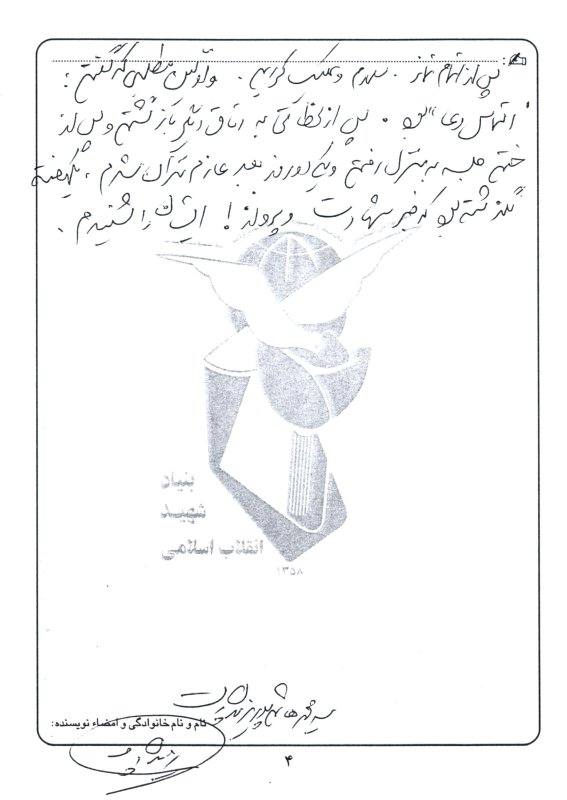 پس از اتمام نماز . سلام و علیک کردیم . و اولین مطلبی که گفتم :
"التماس دعا" بود . پس از لحظاتی به اتاق ایشان بازگشتیم و پس از
ختم جلسه به منزل رفتم و یکی دو روز بعد عازم تهران شدم ، یکهفته
نگذشته بود که خبر شهادت و پرواز ! ایشان را شنیدم .
بنیاد
شهید
انقلاب اسلامی
۱۳۵۸
سید محمد هاشم
نام و نام خانوادگی و امضاء نویسنده:
۴